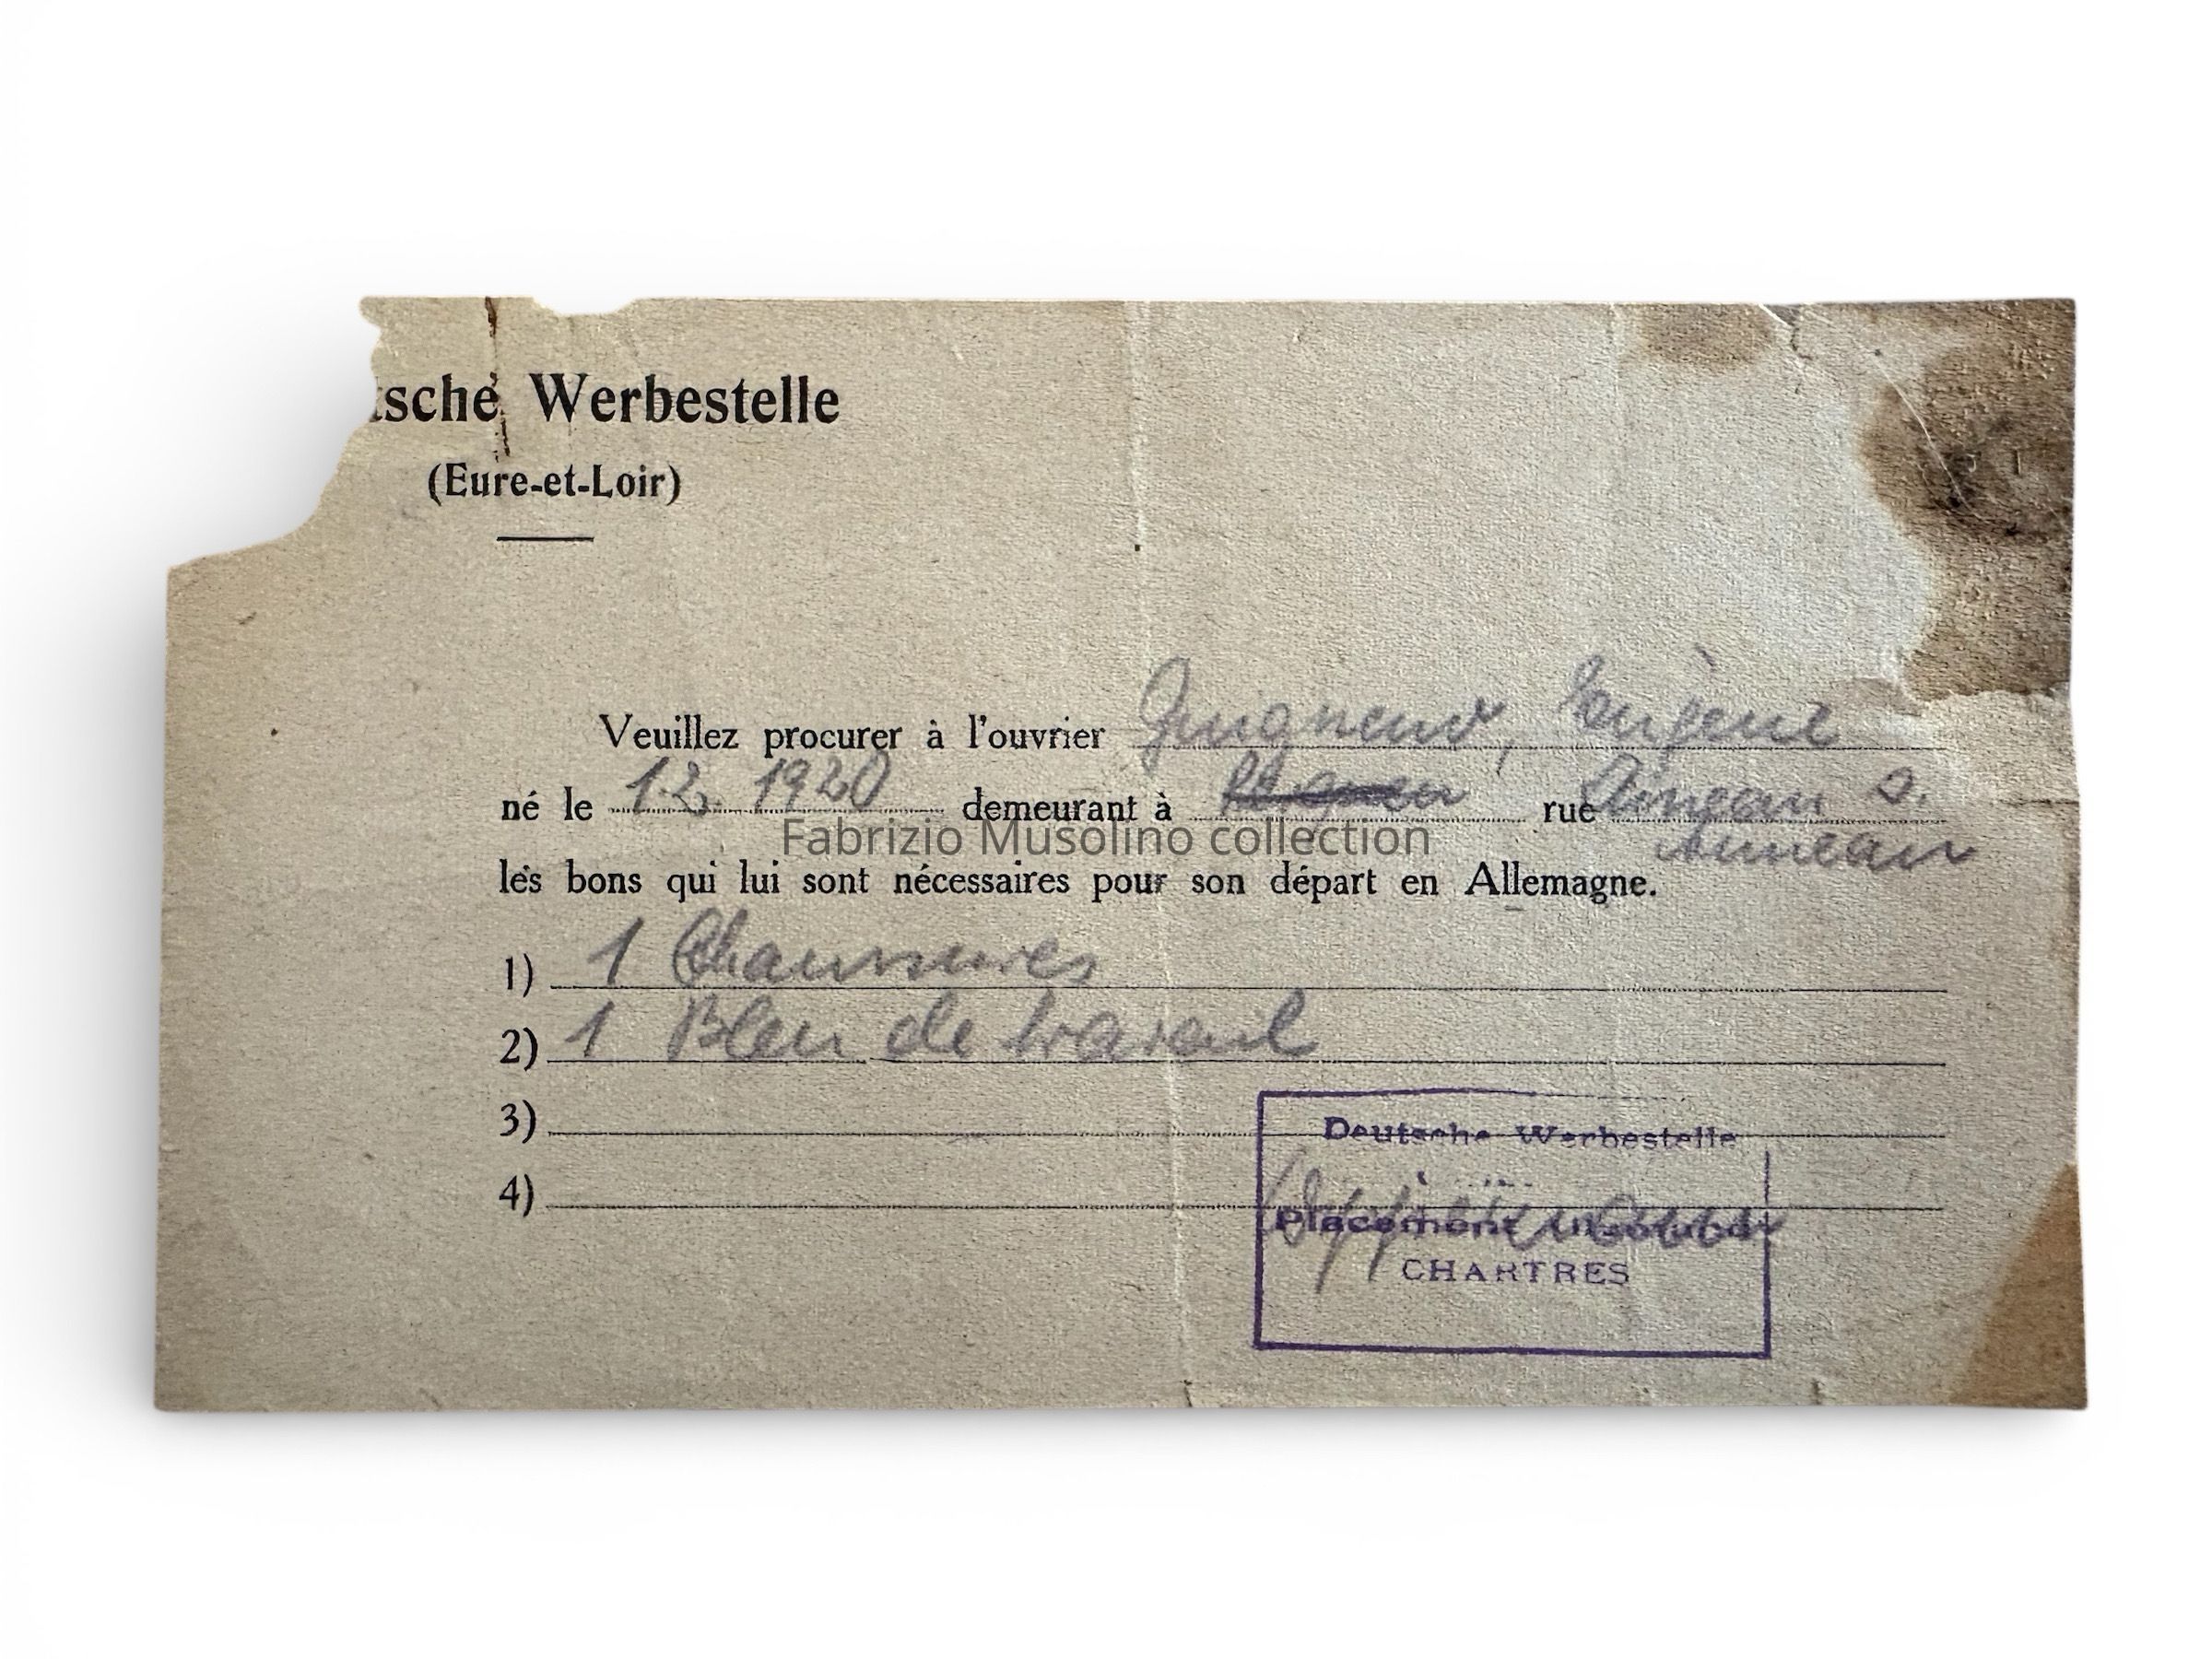 tsche Werbestelle
(Eure-et-Loir)
Veuillez procurer à l'ouvrier Eugène
né le 1.2. 1920 demeurant à rue Auneau
Fabrizio Musolino collection
les bons qui lui sont nécessaires pour son départ en Allemagne.
1) 1 Chaussures
2) 1 Bleu de travail
3)
4)
Deutsche Werbestelle
Placement
CHARTRES